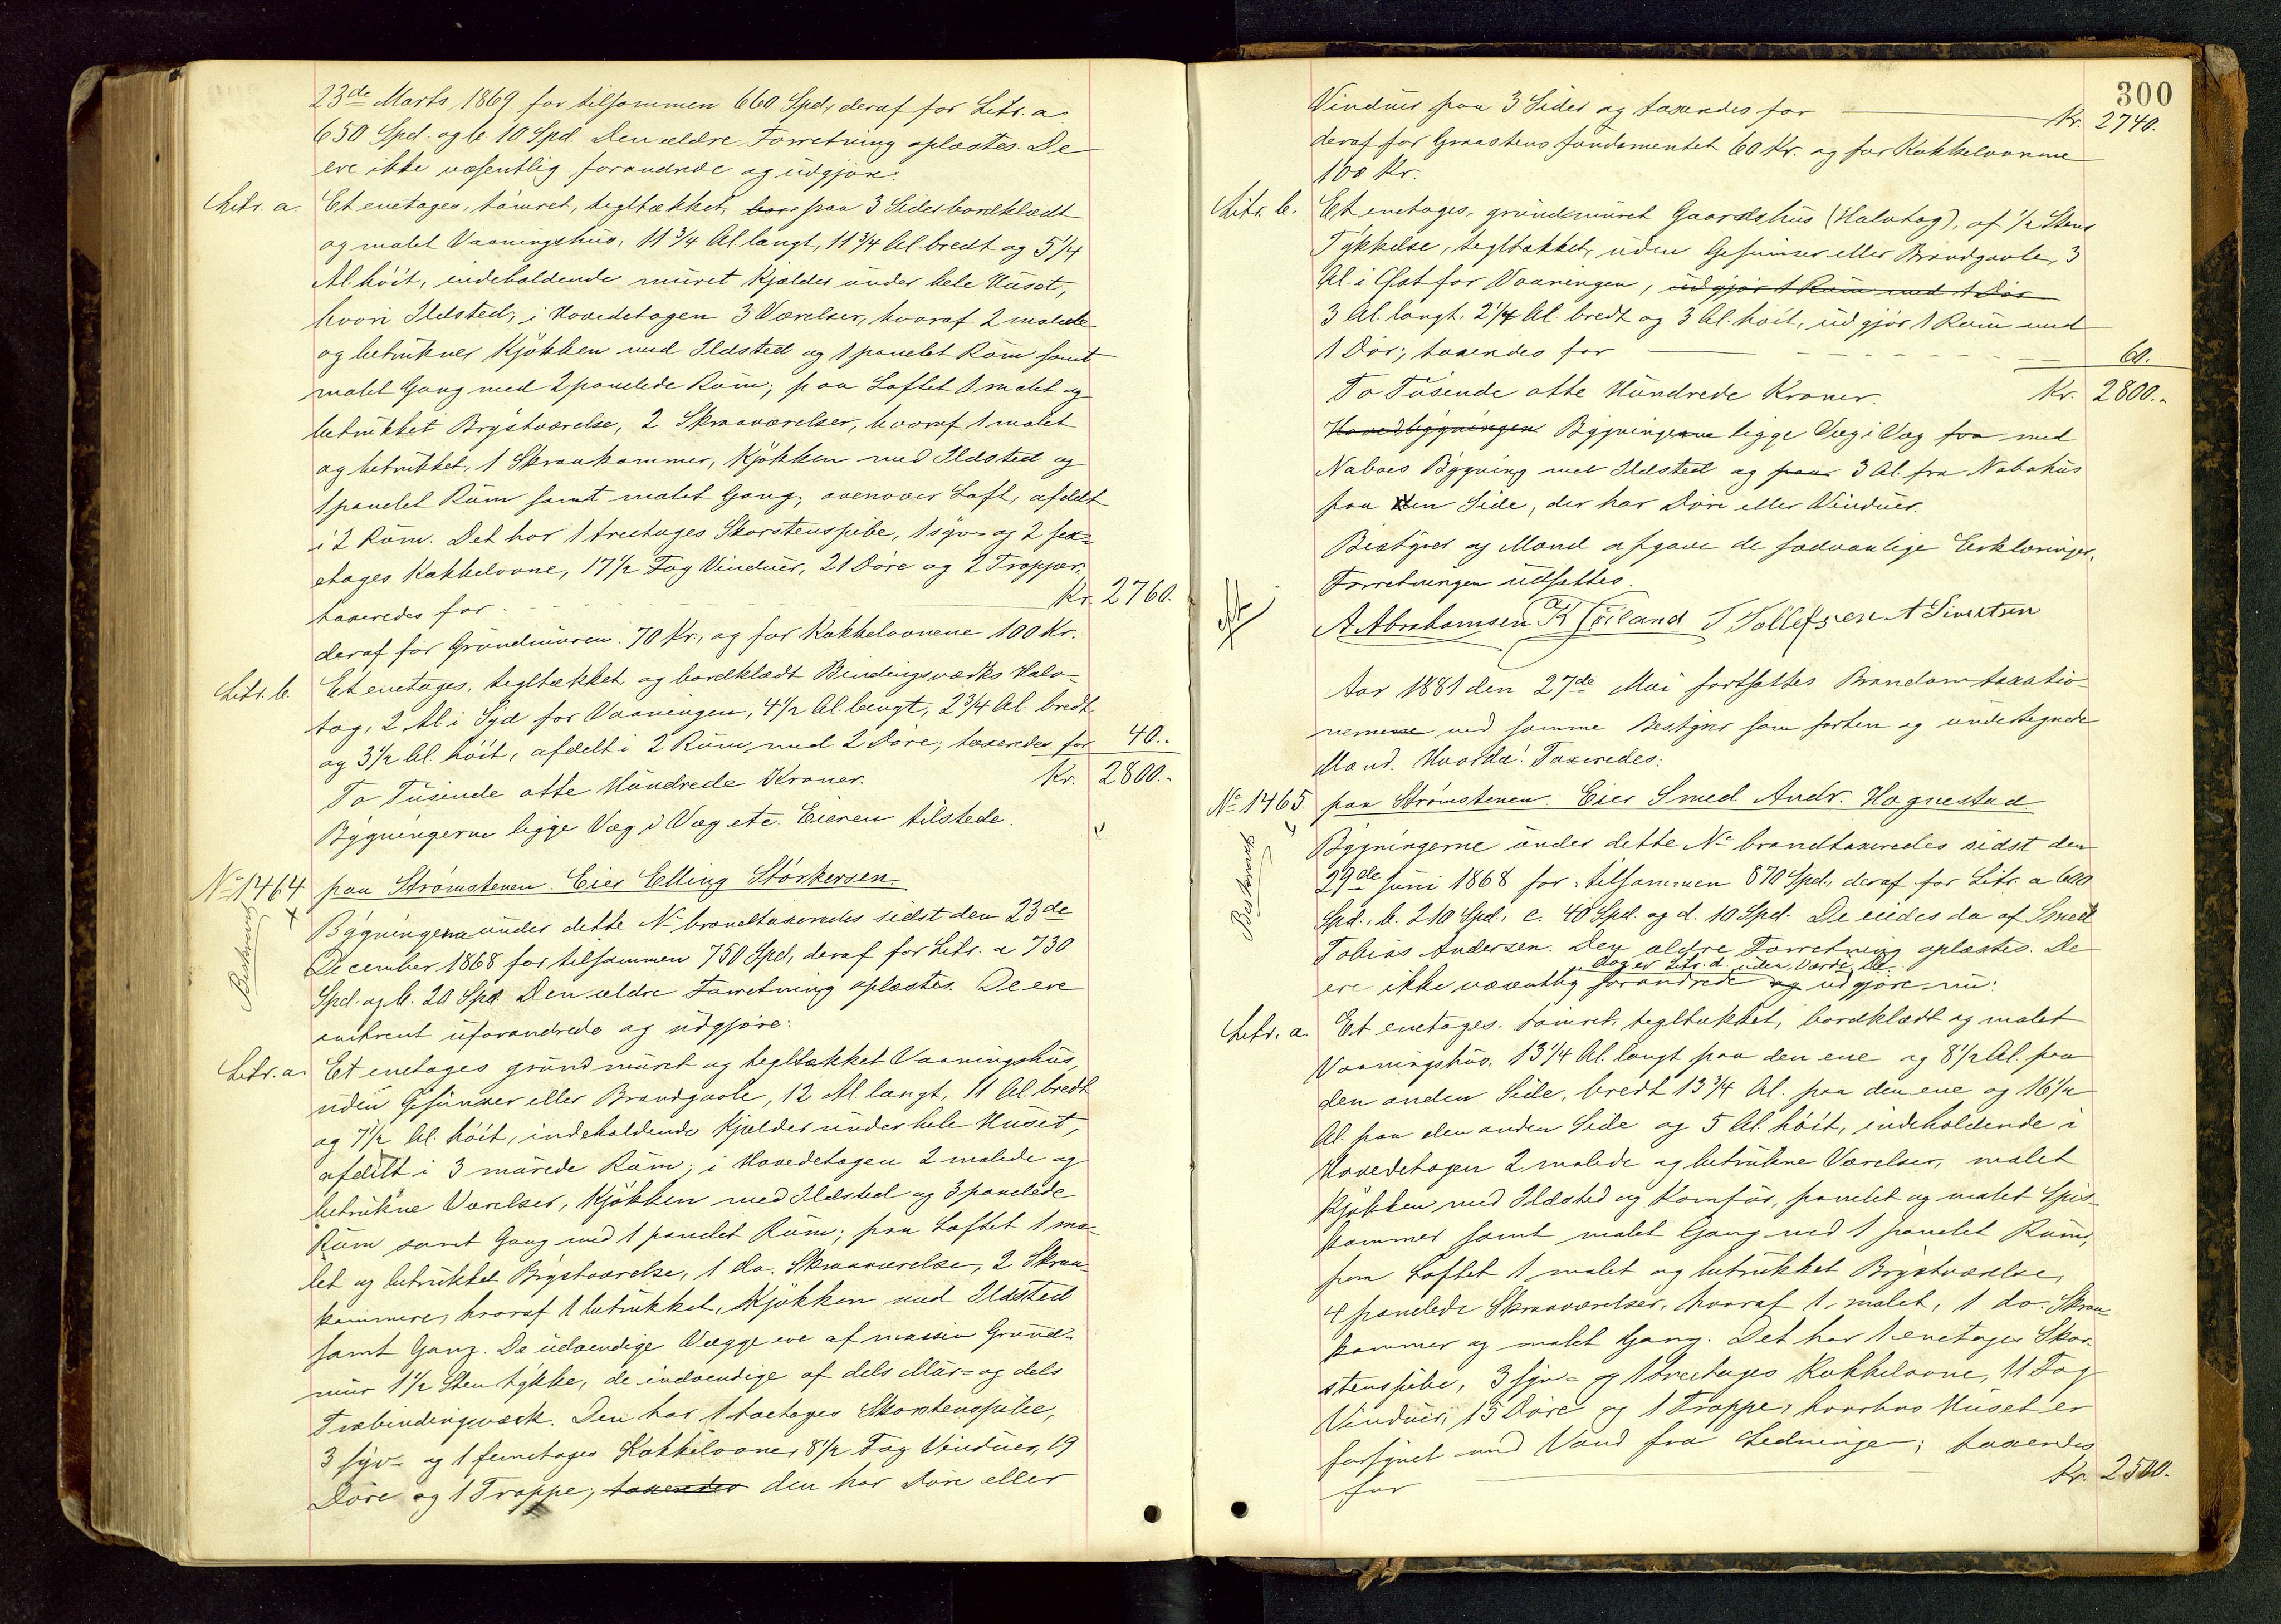 23de Marts 1869 for tilsammen 660 Spd, deraf for Litr. a.
650 Spd. og b. 10 Spd. Den ældre Forretning oplæstes. De
ere ikke væsentlig forandrede og udgjøre:
Litr. a. Et enetages, tømret, tegltækket, paa 3 Sider bordklædt
og malet Vaaningshus, 11 3/4 Al. langt, 11 3/4 Al. bredt og 5 1/4
Al. høit, indeholdende muret Kjælder under hele Huset,
hvori Ildsted; i Hovedetagen 3 Værelser, hvoraf 2 malede
og betrukne, Kjøkken med Ildsted og 1 panelet Rum samt
malet Gang med 2 panelede Rum; paa Loftet 1 malet og
betrukket Brystværelse, 2 Skraaværelser, hvoraf 1 malet
og betrukket, 1 Skraakammer, Kjøkken med Ildsted og
1 panelet Rum samt malet Gang; ovenover Loft, afdelt
i 2 Rum. Det har 1 treetages Skorstenspibe, 1 syv- og 2 sex-
etages Kakkelovne, 17 1/2 Fag Vinduer, 21 Døre og 2 Trapper;
taxeredes for Kr. 2760.
deraf for Grundmuren 70 Kr., og for Kakkelovnene 100 Kr.
Litr. b. Et enetages, tegltækket og bordklædt Bindingsværks Halv-
tag, 2 Al. i Syd for Vaaningen, 4 1/2 Al. langt, 2 3/4 Al. bredt
og 3 1/2 Al. høit, afdelt i 2 Rum med 2 Døre; taxeredes for 40.
To Tusinde otte Hundrede Kroner. Kr. 2800.-
Bygningerne ligge Væg i Væg etc. Eieren tilstede.
No 1464 paa Strømstenen. Eier Elling Størkersen.
Bygningerne under dette No brandtaxeredes sidst den 23de
Bestyrer
December 1868 for tilsammen 750 Spd, deraf for Litr. a 730
Spd. og b. 20 Spd. Den ældre Forretning oplæstes. De ere
omtrent uforandrede og udgjøre:
Litr. a. Et enetages grundmuret og tegltækket Vaaningshus,
uden Gesimser eller Brandgavle, 12 Al. langt, 11 Al. bredt
og 7 1/2 Al. høit, indeholdende Kjælder under hele Huset,
afdelt i 3 murede Rum; i Hovedetagen 2 malede og
betrukne Værelser, Kjøkken med Ildsted og 3 panelede
Rum samt Gang med 1 panelet Rum; paa Loftet 1 ma-
let og betrukket Brystværelse, 1 do. Skraaværelse, 2 Skraa-
kammere, hvoraf 1 betrukket, Kjøkken med Ildsted
samt Gang. De udvendige Vægge ere af massiv Grund-
mur 1 1/2 Sten tykke, de indvendige af dels Mur- og dels
Træbindingsværk. Den har 1 toetages Skorstenspibe,
3 syv- og 1 femetages Kakkelovne, 8 1/2 Fag Vinduer, 19
Døre og 1 Trappe; taxeredes den har Døre eller
300
Vinduer paa 3 Sider og taxeredes for Kr. 2740.
deraf for Graastensfundamentet 60 Kr. og for Kakkelovnene
100 Kr.
Litr. b. Et enetages, grundmuret Gaardshus (Halvtag), af 1/2 Stens
Tykkelse, tegltækket, uden Gesimser eller Brandgavle, 3
Al. i Øst for Vaaningen, udgjør 1 Rum med 1 Dør
3 Al. langt, 2 1/4 Al. bredt og 3 Al. høit, udgjør 1 Rum med
1 Dør; taxeredes for 60.
To Tusende otte Hundrede Kroner. Kr. 2800.-
Hovedbygningen Bygningerne ligge Væg i Væg fra med
Naboes Bygning med Ildsted og paa 3 Al. fra Nabohus
paa den Side, der har Døre eller Vinduer.
Bestyrer og Mænd afgave de sædvanlige Erklæringer.
Forretningen udsattes.
A Abrahamsen T Tollefsen A Sivertsen
Aar 1881 den 27de Mai fortsattes Brandomtaxatio-
nerne med samme Bestyrer som forhen og undertegnede
Mænd. Hvorda: Taxeredes:
No 1465 paa Strømstenen. Eier Smed Andr. Hognestad
Bygningerne under dette No brandtaxeredes sidst den
29de Juni 1868 for tilsammen 870 Spd., deraf for Litr. a 600
Spd., b. 210 Spd., c. 40 Spd. og d. 10 Spd. De eiedes da af Smed
Tobias Andersen. Den ældre Forretning oplæstes. De
dog er Litr. d. uden Værdi. De
ere ikke væsentlig forandrede og udgjøre nu:
Litr. a. Et enetages, tømret, tegltækket, bordklædt og malet
Vaaningshus, 13 1/4 Al. langt paa den ene og 8 1/2 Al. paa
den anden Side, bredt 13 3/4 Al. paa den ene og 16 1/2
Al. paa den anden Side og 5 Al. høit, indeholdende i
Hovedetagen 2 malede og betrukne Værelser, malet
Kjøkken med Ildsted og Komfur, panelet og malet Spis-
kammer samt malet Gang med 1 panelet Rum;
paa Loftet 1 malet og betrukket Brystværelse,
4 panelede Skraaværelser, hvoraf 1 malet, 1 do. Skraa-
kammer og malet Gang. Det har 1 enetages Skor-
stenspibe, 3 syv- og 1 treetages Kakkelovne, 11 Fag
Vinduer, 15 Døre og 1 Trappe, hvorhos Huset er
forsynet med Vand fra Ledningen; taxeredes
for Kr. 2500.